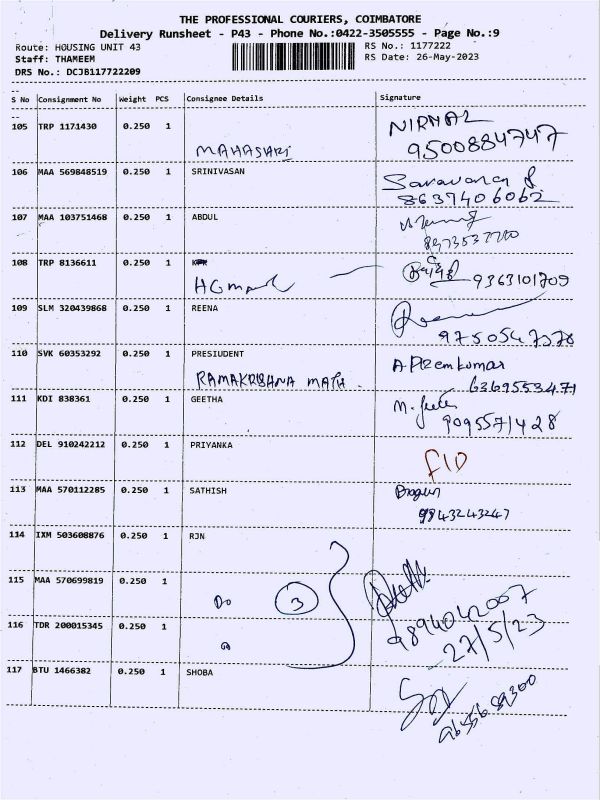 THE PROFESSIONAL COURIERS, COIMBATORE
Delivery Runsheet - P43 - Phone No.:0422-3505555 - Page No.:9
Route: HOUSING UNIT 43 RS No.: 1177222
Staff: THAMEEM RS Date: 26-May-2023
DRS No.: DCJB117722209
S No Consignment No Weight PCS Consignee Details Signature
105 TRP 1171430 0.250 1 NIRMAL
MAHASARI 9500884747
106 MAA 569848519 0.250 1 SRINIVASAN Saravana
8637406062
107 MAA 103751468 0.250 1 ABDUL
108 TRP 8136611 0.250 1
9363101709
109 SLM 320439868 0.250 1 REENA
9750547378
110 SVK 60353292 0.250 1 PRESIUDENT A Prem kumar
RAMAKRISHNA MATH. 6369555347
111 KDI 838361 0.250 1 GEETHA M. Geetha
9095571428
112 DEL 910242212 0.250 1 PRIYANKA
113 MAA 570112285 0.250 1 SATHISH
9843243247
114 IXM 503608876 0.250 1 RJN
115 MAA 570699819 0.250 1 Do 3
9894042007
27/5/23
116 TDR 200015345 0.250 1
117 BTU 1466382 0.250 1 SHOBA